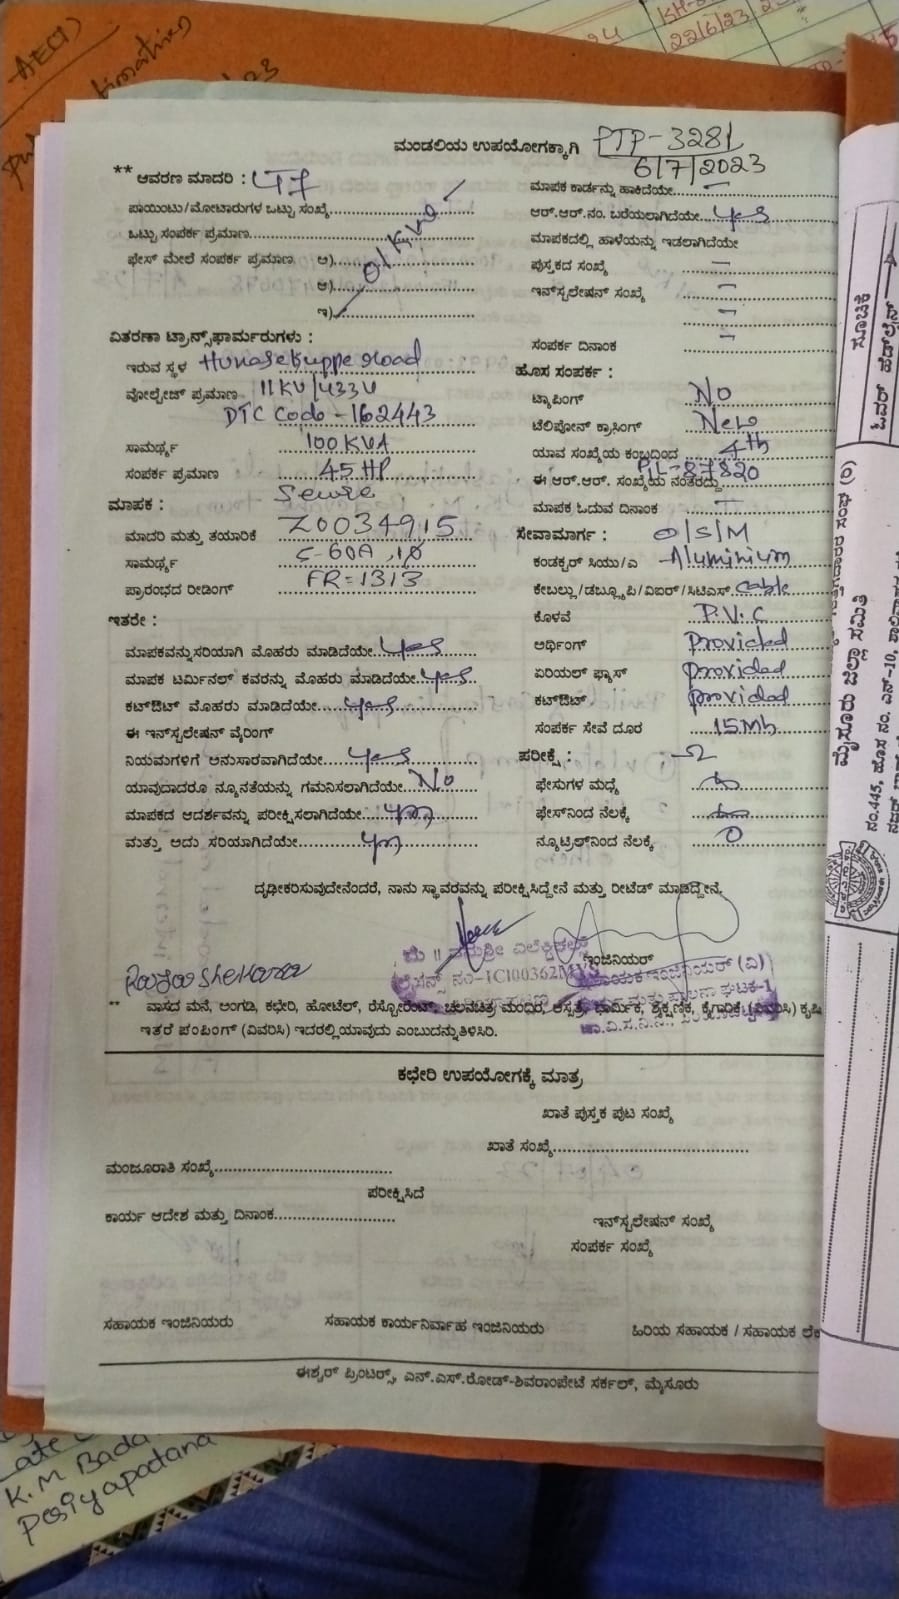 AEC(1)
KH-
22/6/23
ಮಂಡಲಿಯ ಉಪಯೋಗಕ್ಕಾಗಿ PTP-3281
6/7/2023
** ಆವರಣ ಮಾದರಿ :
ಪಾಯಿಂಟು/ಮೋಟಾರುಗಳ ಒಟ್ಟು ಸಂಖ್ಯೆ
ಒಟ್ಟು ಸಂಪರ್ಕ ಪ್ರಮಾಣ
ಫೇಸ್ ಮೇಲೆ ಸಂಪರ್ಕ ಪ್ರಮಾಣ ಅ)
ಆ)
ಇ)
ವಿತರಣಾ ಟ್ರಾನ್ಸ್‌ಫಾರ್ಮರುಗಳು :
ಇರುವ ಸ್ಥಳ Hunasekuppe road
ವೋಲ್ಟೇಜ್ ಪ್ರಮಾಣ 11KV/433V
DTC Code - 162443
ಸಾಮರ್ಥ್ಯ 100KVA
ಸಂಪರ್ಕ ಪ್ರಮಾಣ 45HP
ಮಾಪಕ : Secure
ಮಾದರಿ ಮತ್ತು ತಯಾರಿಕೆ Z0034915
ಸಾಮರ್ಥ್ಯ 5-60A, 1Φ
ಪ್ರಾರಂಭದ ರೀಡಿಂಗ್ FR=1313
ಇತರೇ :
ಮಾಪಕವನ್ನುಸರಿಯಾಗಿ ಮೊಹರು ಮಾಡಿದೆಯೇ yes
ಮಾಪಕ ಟರ್ಮಿನಲ್ ಕವರನ್ನು ಮೊಹರು ಮಾಡಿದೆಯೇ yes
ಕಟ್‌ಔಟ್ ಮೊಹರು ಮಾಡಿದೆಯೇ yes
ಈ ಇನ್‌ಸ್ಟಲೇಷನ್ ವೈರಿಂಗ್
ನಿಯಮಗಳಿಗೆ ಅನುಸಾರವಾಗಿದೆಯೇ yes
ಯಾವುದಾದರೂ ನ್ಯೂನತೆಯನ್ನು ಗಮನಿಸಲಾಗಿದೆಯೇ No
ಮಾಪಕದ ಆದರ್ಶವನ್ನು ಪರೀಕ್ಷಿಸಲಾಗಿದೆಯೇ yes
ಮತ್ತು ಅದು ಸರಿಯಾಗಿದೆಯೇ yes
ಮಾಪಕ ಕಾರ್ಡನ್ನು ಹಾಕಿದೆಯೇ
ಆರ್.ಆರ್.ನಂ. ಬರೆಯಲಾಗಿದೆಯೇ yes
ಮಾಪಕದಲ್ಲಿ ಹಾಳೆಯನ್ನು ಇಡಲಾಗಿದೆಯೇ
ಪುಸ್ತಕದ ಸಂಖ್ಯೆ
ಇನ್‌ಸ್ಟಲೇಷನ್ ಸಂಖ್ಯೆ
ಸಂಪರ್ಕ ದಿನಾಂಕ
ಹೊಸ ಸಂಪರ್ಕ :
ಟ್ಯಾಪಿಂಗ್ No
ಟೆಲಿಪೋನ್ ಕ್ರಾಸಿಂಗ್ New
ಯಾವ ಸಂಖ್ಯೆಯ ಕಂಬದಿಂದ 4th
ಈ ಆರ್.ಆರ್. ಸಂಖ್ಯೆಯ ನಂತರದ್ದು PIL-87820
ಮಾಪಕ ಓದುವ ದಿನಾಂಕ
ಸೇವಾಮಾರ್ಗ : O/S/M
ಕಂಡಕ್ಟರ್ ಸಿಯು/ಎ Aluminium
ಕೇಬಲ್ಲು/ಡಬ್ಲ್ಯೂಪಿ/ವಿಐರ್/ಸಿಟಿಎಸ್ cable
ಕೊಳವೆ P.V.C
ಅರ್ಥಿಂಗ್ Provided
ಏರಿಯಲ್ ಫ್ಯೂಸ್ provided
ಕಟ್‌ಔಟ್ provided
ಸಂಪರ್ಕ ಸೇವೆ ದೂರ 15Mts
ಪರೀಕ್ಷೆ : -Ω
ಫೇಸುಗಳ ಮಧ್ಯೆ
ಫೇಸ್‌ನಿಂದ ನೆಲಕ್ಕೆ
ನ್ಯೂಟ್ರಿಲ್‌ನಿಂದ ನೆಲಕ್ಕೆ 0
ದೃಢೀಕರಿಸುವುದೇನೆಂದರೆ, ನಾನು ಸ್ಥಾವರವನ್ನು ಪರೀಕ್ಷಿಸಿದ್ದೇನೆ ಮತ್ತು ರೀಟೆಡ್ ಮಾಡಿದ್ದೇನೆ.
ಇಂಜಿನಿಯರ್
Rajashekara
** ವಾಸದ ಮನೆ, ಅಂಗಡಿ, ಕಛೇರಿ, ಹೋಟೆಲ್, ರೆಸ್ಟೋರೆಂಟ್, ಚಲನಚಿತ್ರ ಮಂದಿರ, ಆಸ್ಪತ್ರೆ, ಧಾರ್ಮಿಕ, ಶೈಕ್ಷಣಿಕ, ಕೈಗಾರಿಕೆ (ವಿವರಿಸಿ) ಕೃಷಿ
ಇತರೆ ಪಂಪಿಂಗ್ (ವಿವರಿಸಿ) ಇದರಲ್ಲಿ ಯಾವುದು ಎಂಬುದನ್ನು ತಿಳಿಸಿರಿ.
ಕಛೇರಿ ಉಪಯೋಗಕ್ಕೆ ಮಾತ್ರ
ಖಾತೆ ಪುಸ್ತಕ ಪುಟ ಸಂಖ್ಯೆ
ಖಾತೆ ಸಂಖ್ಯೆ
ಮಂಜೂರಾತಿ ಸಂಖ್ಯೆ
ಪರೀಕ್ಷಿಸಿದೆ
ಕಾರ್ಯ ಆದೇಶ ಮತ್ತು ದಿನಾಂಕ
ಇನ್‌ಸ್ಟಲೇಷನ್ ಸಂಖ್ಯೆ
ಸಂಪರ್ಕ ಸಂಖ್ಯೆ
ಸಹಾಯಕ ಇಂಜಿನಿಯರು ಸಹಾಯಕ ಕಾರ್ಯನಿರ್ವಾಹ ಇಂಜಿನಿಯರು ಹಿರಿಯ ಸಹಾಯಕ / ಸಹಾಯಕ ಲೆಕ
ಈಶ್ವರ್ ಪ್ರಿಂಟರ್ಸ್, ಎನ್.ಎಸ್.ರೋಡ್-ಶಿವರಾಂಪೇಟೆ ಸರ್ಕಲ್, ಮೈಸೂರು
ಸೂಚಿಕೆ
ಮೈಸೂರು ಜಿಲ್ಲಾ ಸಮಿತಿ
ನಂ.445, ಹೊಸ ನಂ. ಎನ್-10,
K.M Bada
Periyapatana